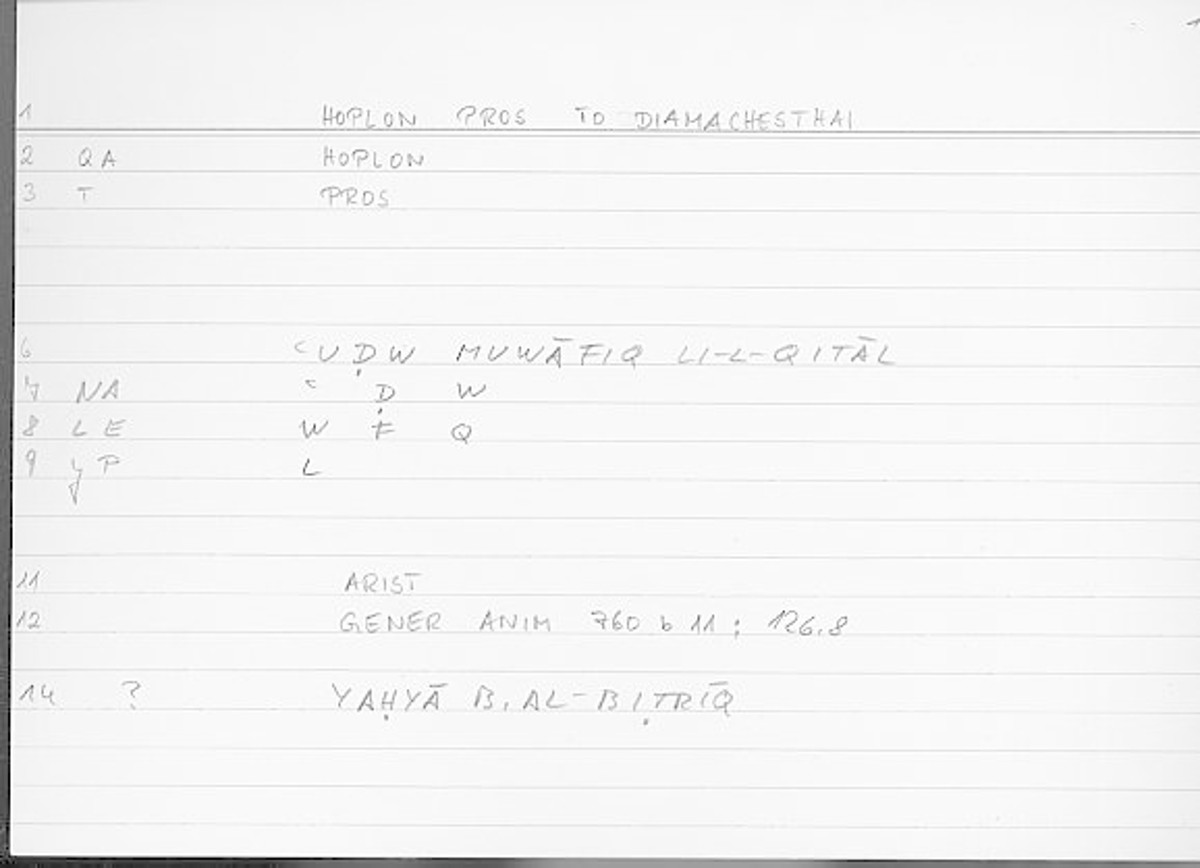 1
1 HOPLON PROS TO DIAMACHESTHAI
2 QA HOPLON
3 T PROS
6 ʿUḌW MUWĀFIQ LI-L-QITĀL
7 NA ʿ Ḍ W
8 LE W F Q
9 yP L
11 ARIST
12 GENER ANIM 760 b 11 ; 126.8
14 ? YAḤYĀ B. AL-BIṬRĪQ